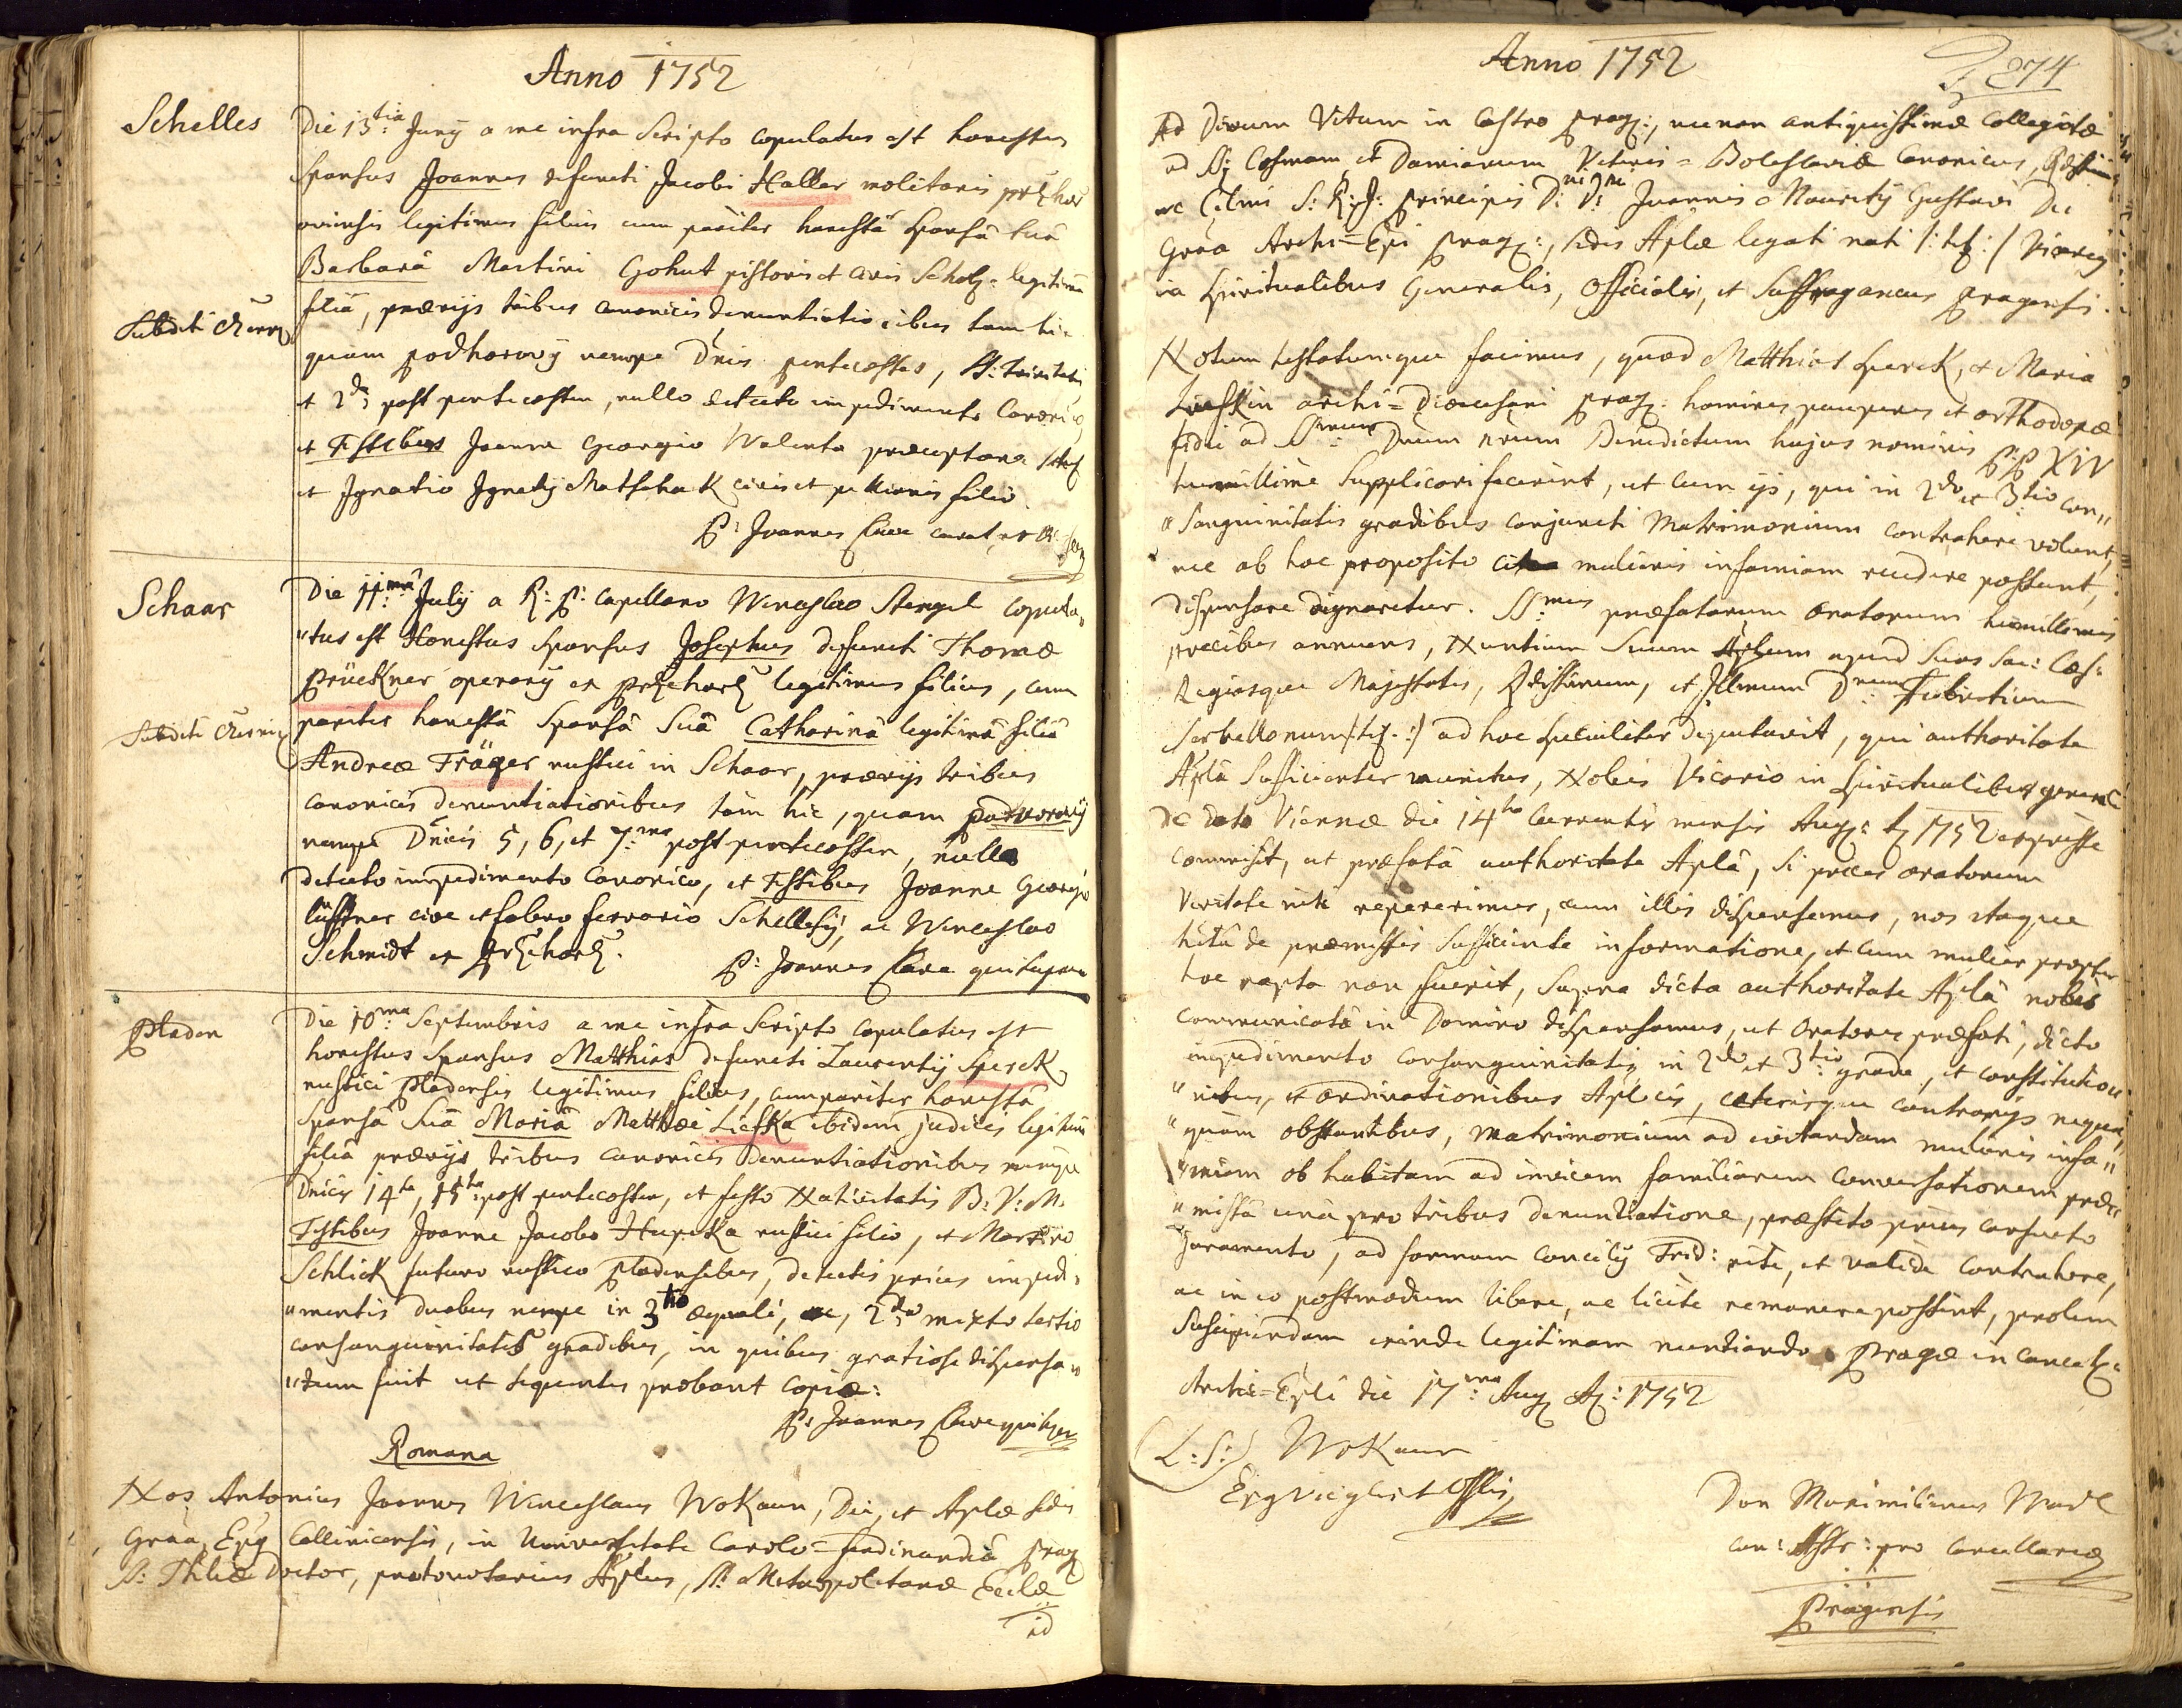 Anno 1752
Schelles
Die 13tia Junÿ a me infra Scripto copulatus est honestus
Sponsus Joannes defuncti Jacobi Haller molitoris
legitimus filius cum pariter honestâ Sponsâ suâ
Barbarâ Martini Gohut pistoris et civis Schelz= legitimâ
Subditi
filiâ, prævijs tribus canonicis denuntiationibus tam hic
quam podhorovÿ nempe Dnis pentecostes, SS: Trinitatis
et 2da post pentecosten, nullo detecto impedimento Canonico
et Testibus Joanne Georgio Walenta præceptore
et Ignatio Ignatÿ Matschak civis et pellionis filio.
P: Joannes Clave curatus
Schaar
Die 11ma Julÿ a R: P: Capellano Wenceslao Stengel copula„
„tus est Honestus Sponsus Josephus defuncti Thomæ
Prückner operarÿ ex legitimus filius, cum
Subditi
pariter honestâ Sponsâ Suâ Catharinâ legitimâ filiâ
Andreæ Träger rustici in Schaar, prævijs tribus
canonicis denuntiationibus tam hic, quam podhorovÿ
nempe Dnicis 5, 6, et 7ma post pentecosten, nullo
detecto impedimento Canonico, et Testibus Joanne Georgio
cive et fabro ferrario Schellesÿ, ac Wenceslao
Schmidt ex
P: Joannes Clave qui supra
Pladen
Die 10ma Septembris a me infra Scripto copulatus est
honestus Sponsus Matthias defuncti Laurentÿ Sperck
rustici Pladensis legitimus filius, cum pariter honestâ
Sponsâ Suâ Mariâ Matthæi Liefka ibidem judicis legitimâ
filiâ prævijs tribus canonicis denuntiationibus nempe
Dnicis 14ta, 15ta post pentecosten, et festo Nativitatis B: V: M.
Testibus Joanne Jacobo Hupka rustici filio, et Martino
Schlick futuro rustico Pladensibus, detectis prius impedi„
„mentis duobus nempe in 3tio æquali, ac, 2do mixto tertio
consanguinitatis gradibus, in quibus gratiose dispensa„
„tum fuit ut sequentes probant copiæ:
P: Joannes Clave qui supra
Romana
Nos Antonius Joannes Wenceslaus Wokaun, Dei, et Aplæ Sedis
Graâ, Epus Callinicensis, in Universitate Carolo=ferdinandeâ Prag
SS: Thliæ Doctor, protonotarius Aplus, S: Metropolitanæ Eccliæ
ad
Anno 1752
274
Ad Divum Vitum in Castro prag:, necnon antiquissimæ Collegiatæ
ad SS: Cosmam et Damianum Veteris=Boleslaviæ Canonicus,
ac Celsmi S: R: J: principis D:ni D:ni Joannis Mauritÿ Gustavi Dei
Graâ Archi=Epi prag:, sedis Aplæ legati nati /: tit: / Vicarius
in Spiritualibus Generalis, Officialis, et Suffraganeus Pragensis.
Notum testatumque facimus, quod Matthias Sperck, et Maria
Liefkin archi=Diæcesani prag: homines pauperes et orthodoxæ
fidei ad SSmum Dnum nrum Benedictum hujus nominis P:P XIV
humillime Supplicari fecerint, ut cum ijs, qui in 2do et 3tio con„
„sanguinitatis gradibus conjuncti Matrimonium contrahere volunt,
nec ab hoc proposito citra mulieris infamiam recedere possunt,
dispensare dignaretur. SSmus præfatorum Oratorum humillimis
precibus annuens, Nuntium Suum Aplum apud Suas Sac: Cæs:
Regiasque Majestates, et Illmum Dnum Fabritium
Serbellonum /: tit: :/ ad hoc specialiter deputavit, qui authoritate
Aplâ Sufficienter munitus, Nobis Vicario in Spiritualibus generali
de dato Viennæ die 14to currentis mensis Aug: 1752 expresse
commisit, ut præfatâ authoritate Aplâ, si preces oratorum
Veritate niti repererimus, cum illis dispensemus, nos itaque
hâtâ de præmissis Sufficiente informatione, et cum mulier propter
hoc rapta non fuerit, Supra dicta authoritate Aplâ nobis
communicatâ in Domino dispensamus, ut Oratores præfati, dicto
impedimento consanguinitatis in 2do et 3tio gradu, et constitutio„
„nibus, et ordinationibus Aplicis, cæterisque contrarijs nequa„
„quam obstantibus, Matrimonium ad evitandam mulieris infa„
„miam ob habitam ad invicem familiarem conversationem præ„
„missâ unâ pro tribus denuntiatione, præstito prius consueto
Juramento, ad formam concilÿ Trid: rite, et valide contrahere,
ac in eo postmodum libere, ac licite remanere possint, prolem
Suscipiendam exinde legitimam nuntiando. Pragæ in Cancell:
Archi=Epli die 17ma Aug A: 1752
(L: S:) Wokaun
Epus Vic glis et Offlis
Don Maximilianus
can: Astr: pro cancellariæ
Pragensis